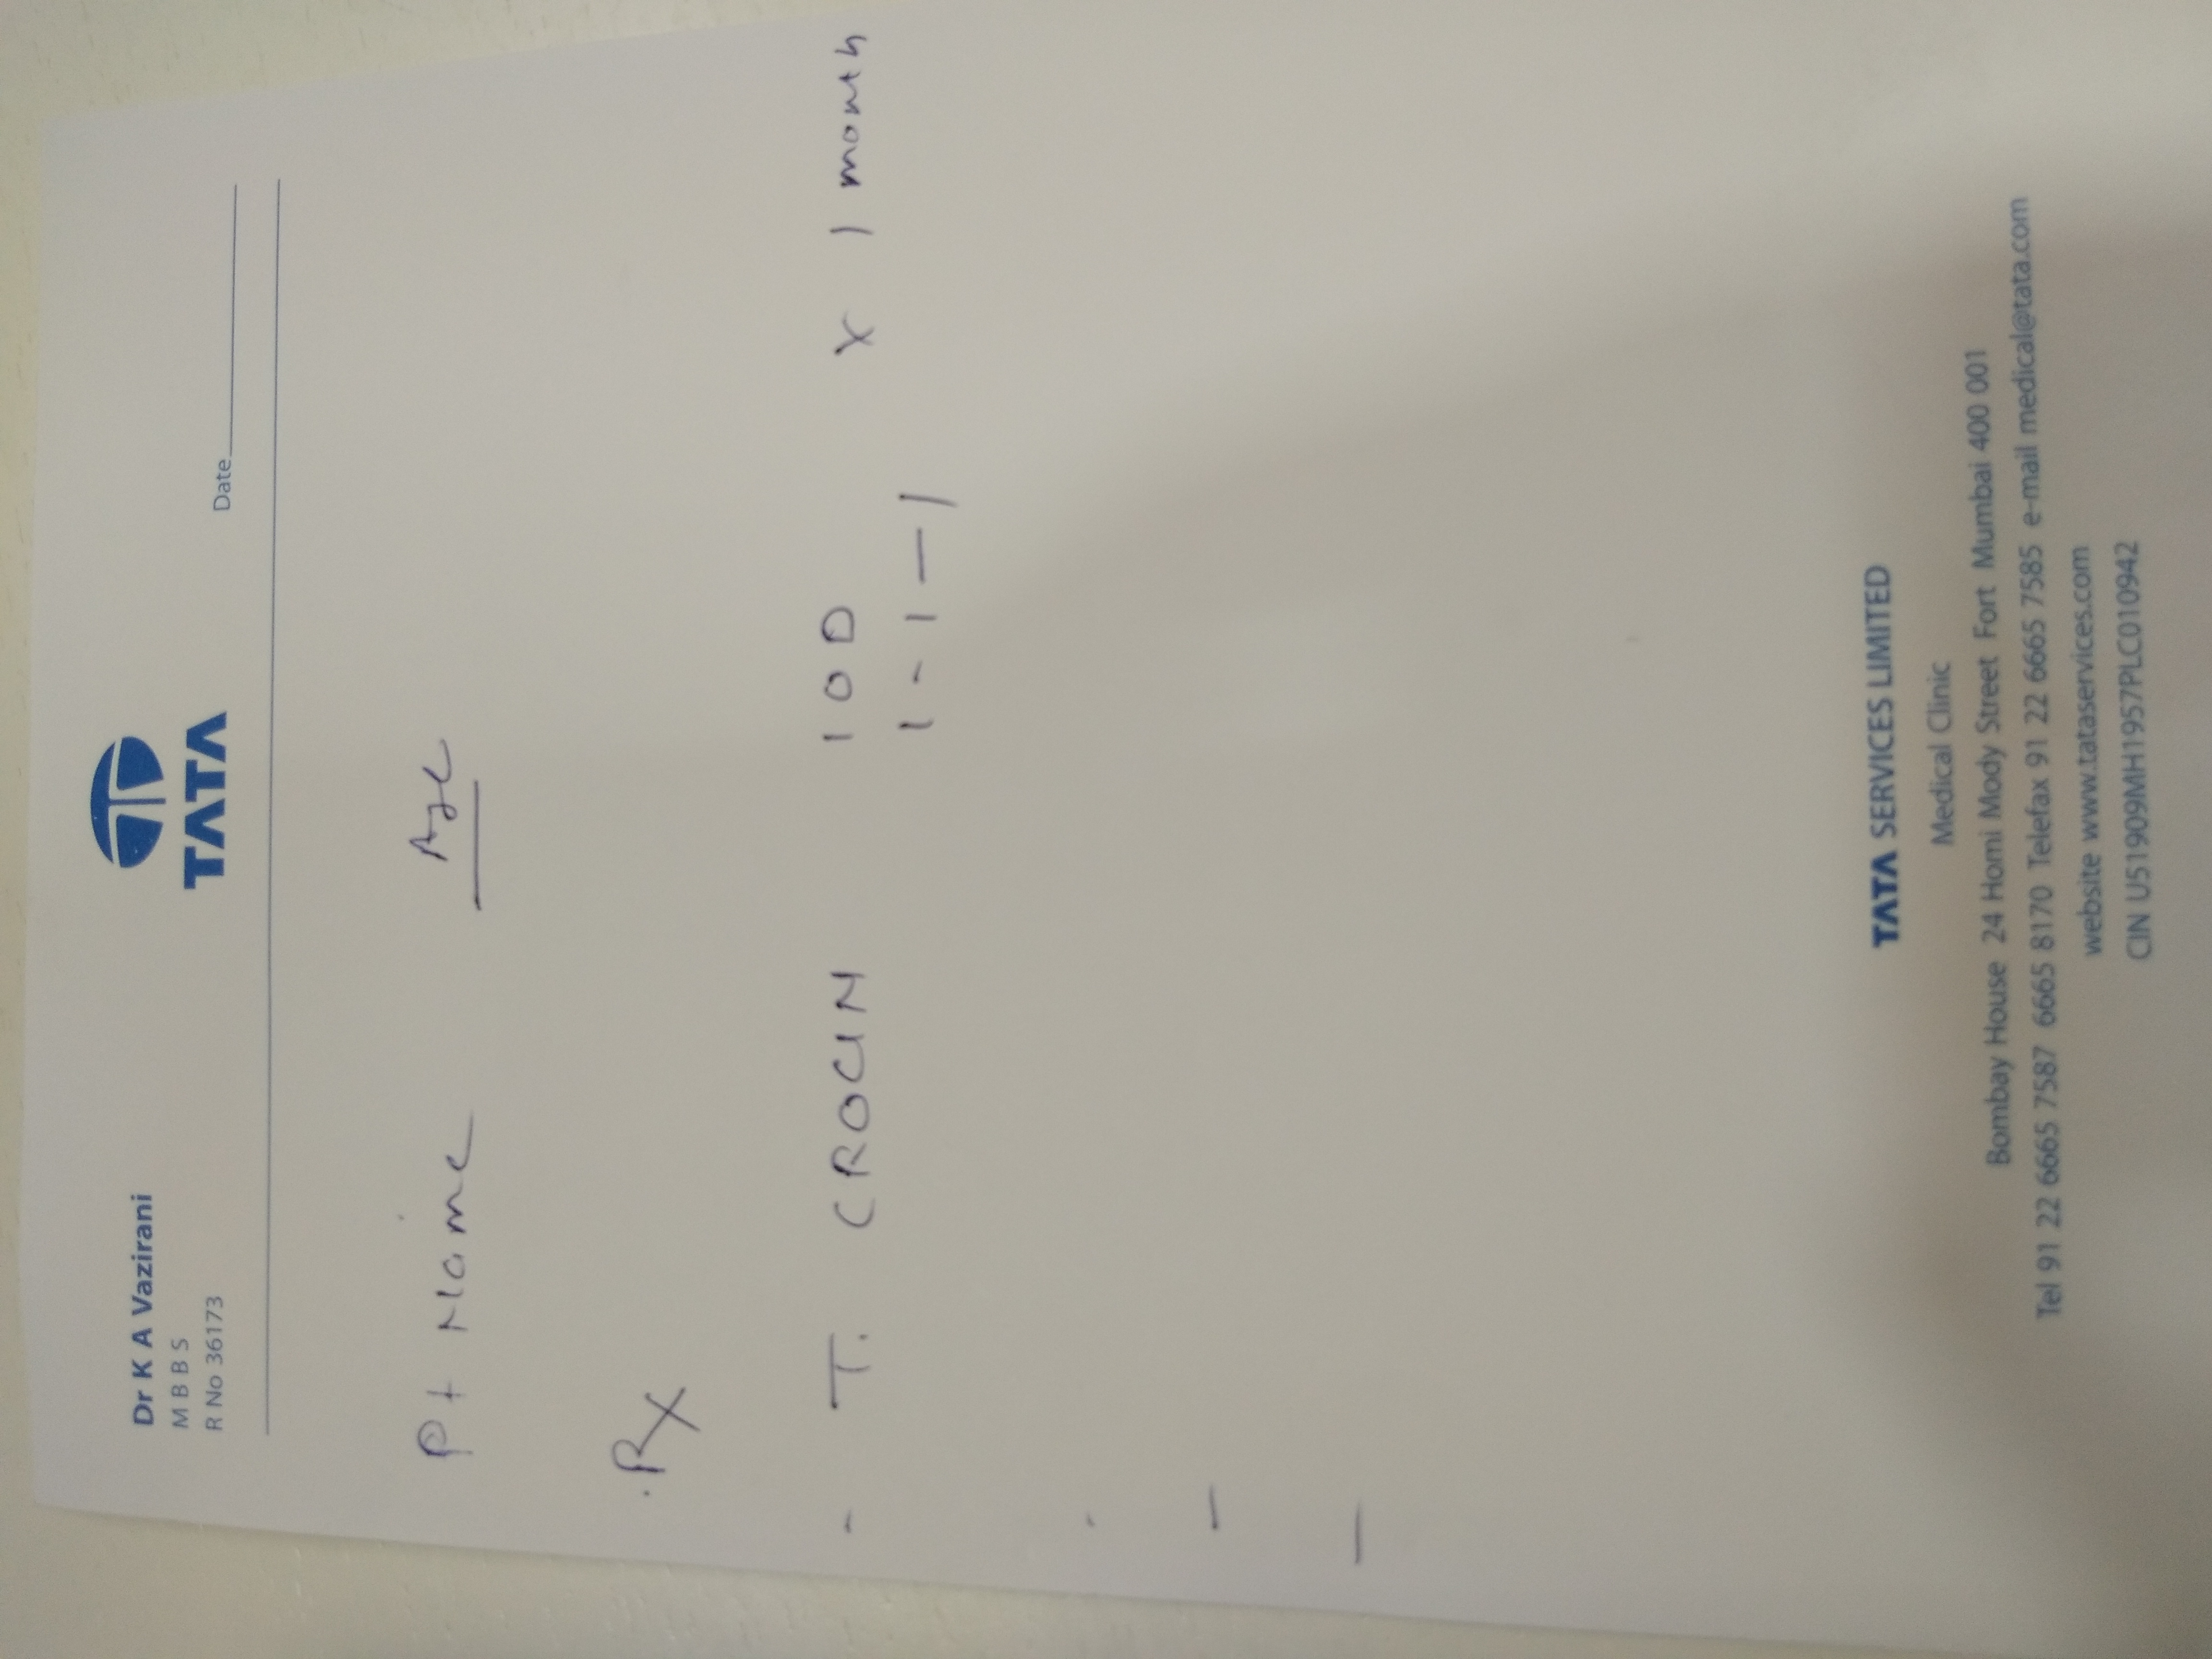 Dr K A Vazirani
M B B S
R No 36173
TATA
Date
Pt Name Age
Rx
- T. CROCIN 1 OD x 1 month
1 - 1 - 1
-
-
-
TATA SERVICES LIMITED
Medical Clinic
Bombay House 24 Homi Mody Street Fort Mumbai 400 001
Tel 91 22 6665 7587 6665 8170 Telefax 91 22 6665 7585 e-mail medical@tata.com
website www.tataservices.com
CIN U51909MH1957PLC010942